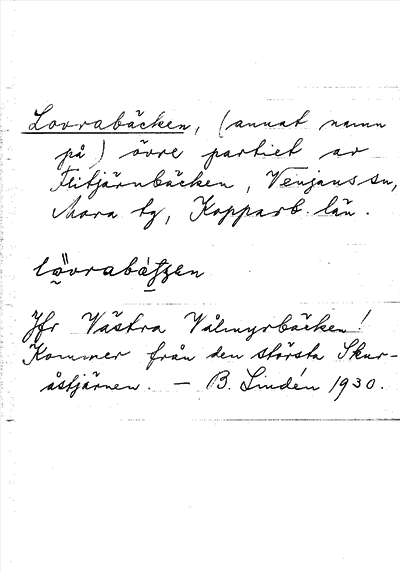 Lovrabäcken, (annat namn
på) övre partiet av
Flitjärnbäcken, Venjans sn,
Mora tg, Kopparb. län.
Jfr Västra Vålmyrbäcken!
Kommer från den största Skur-
åstjärnen. — B. Lindén 1930.